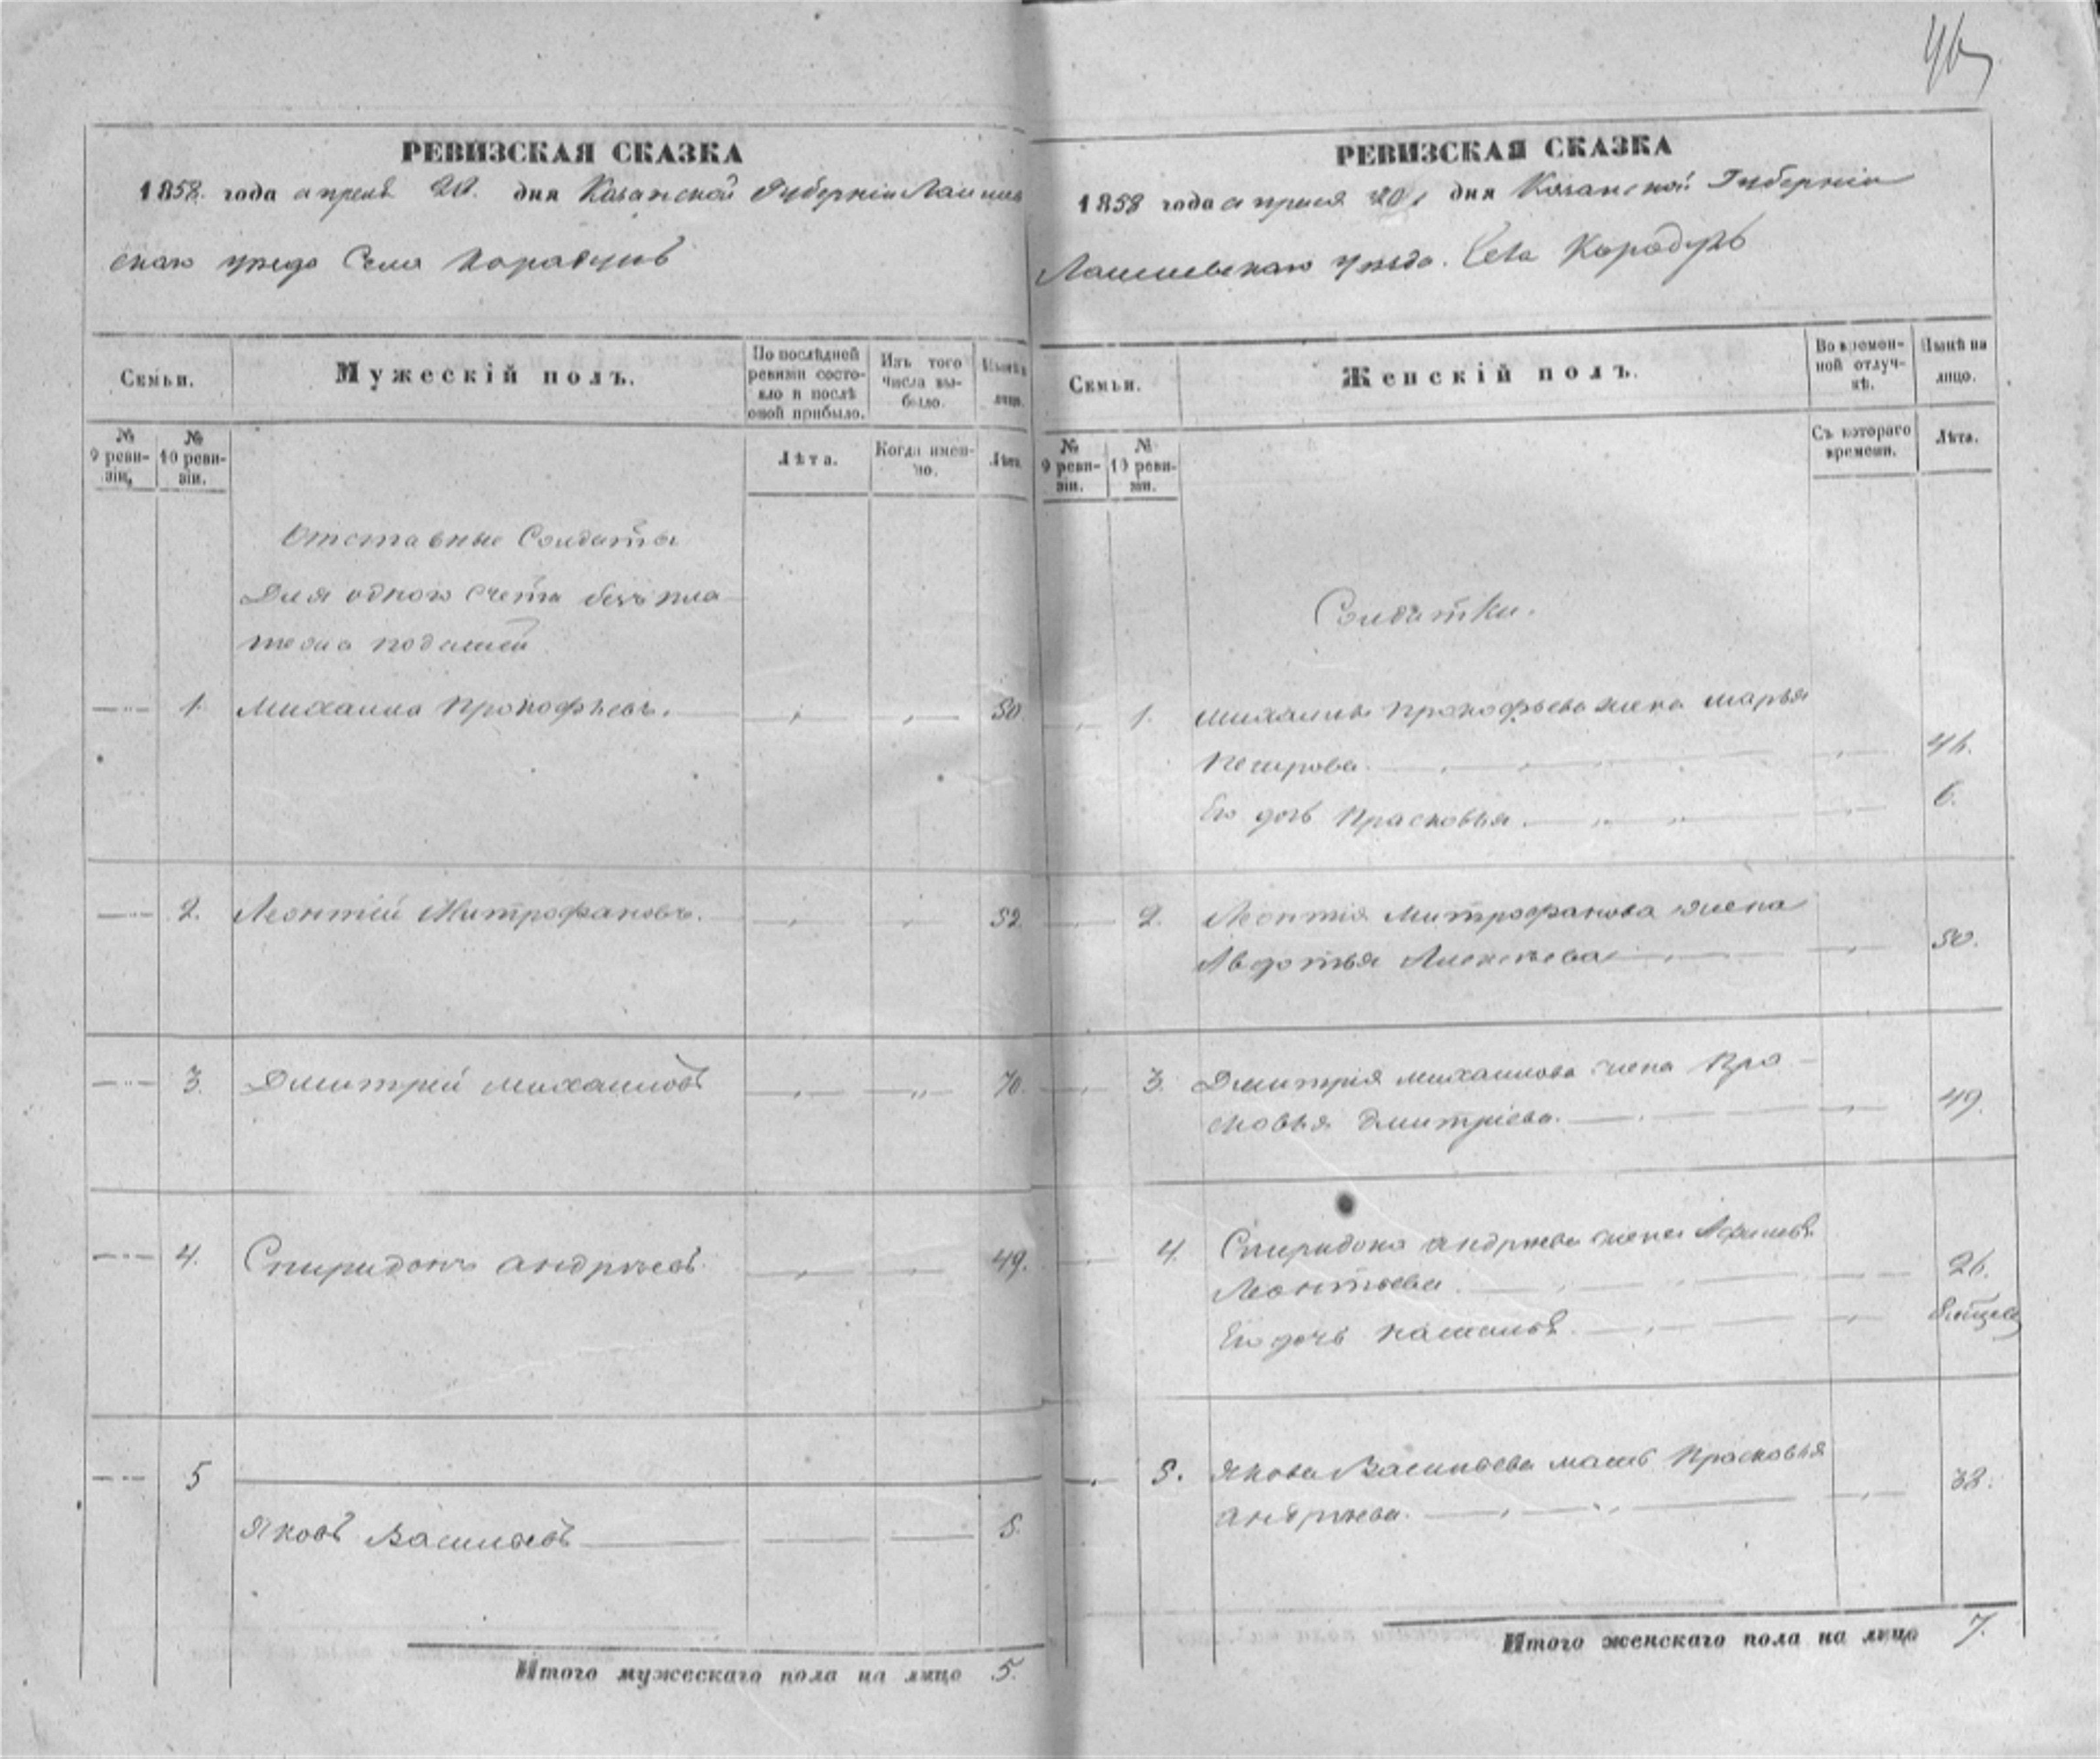 46
РЕВИЗСКАЯ СКАЗКА
1858. года апреля 20. дня Казанской Губерніи Лаишев
скаго уезда Села Корадули
Семьи.
Мужескій полъ.
По послѣдней ревизіи состояло и послѣ оной прибыло.
Изъ того числа выбыло.
Нынѣ на лицо.
№ 9 ревизіи.
№ 10 ревизіи.
Лѣта.
Когда именно.
Лѣта.
Отставные Солдаты
Для одного счета безъ пла
тежа податей
1. Михаила Прокофьевъ. 50.
2. Леонтій Митрофановъ. 52.
3. Дмитрій Михаиловъ 70.
4. Спиридонъ Андреевъ. 49.
5
Яковъ Васильевъ 5.
Итого мужескаго пола на лицо 5.
РЕВИЗСКАЯ СКАЗКА
1858 года апреля 20. дня Казанской Губерніи
Лаишевскаго уезда. Села
Семьи.
Женскій полъ.
Во временной отлучкѣ.
Нынѣ на лицо.
№ 9 ревизіи.
№ 10 ревизіи.
Съ котораго времени.
Лѣта.
Солдатки.
1. Михаила Прокофьева жена Марья
Петрова. 46.
Его дочь Прасковья. 6.
2. Леонтія Митрофанова жена
Авдотья Алексеева 50.
3. Дмитрія Михаилова жена Пра
сковья Дмитріева. 49.
4. Спиридона Андреева жена
Леонтьева. 26.
Его дочь
5. Якова Васильева мать Прасковья
Андреева. 32.
Итого женскаго пола на лицо 7.